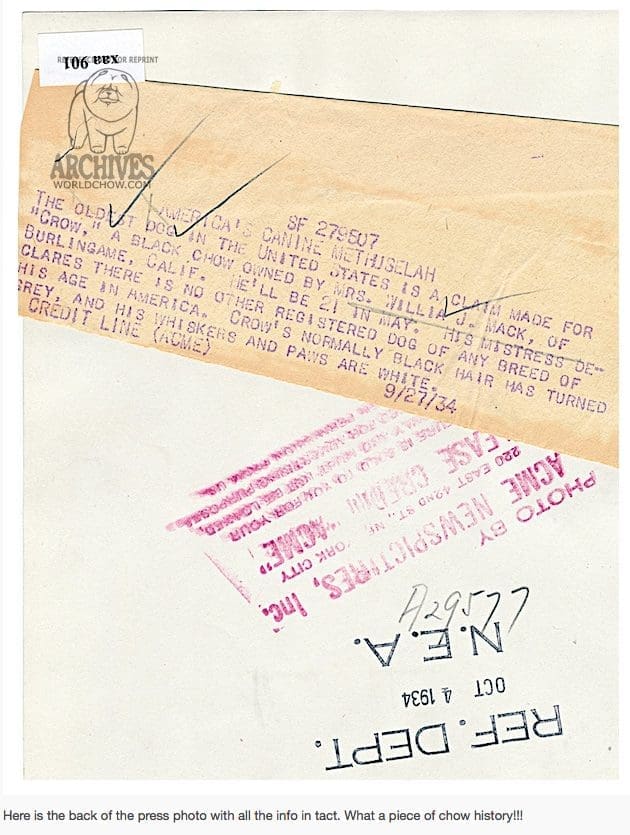 OR REPRINT
ARCHIVES
WORLDCHOW.COM
SF 279507
AMERICA'S CANINE METHUSELAH
THE OLDEST DOG IN THE UNITED STATES IS A CLAIM MADE FOR
"CROW," A BLACK CHOW OWNED BY MRS. WILLIA J. MACK, OF
BURLINGAME, CALIF. HE'LL BE 21 IN MAY. HIS MISTRESS DE-
CLARES THERE IS NO OTHER REGISTERED DOG OF ANY BREED OF
HIS AGE IN AMERICA. CROW'S NORMALLY BLACK HAIR HAS TURNED
GREY, AND HIS WHISKERS AND PAWS ARE WHITE.
CREDIT LINE (ACME) 9/27/34
PHOTO BY
ACME NEWSPICTURES, Inc.
220 EAST 42ND ST., YORK CITY
EASE CREDIT "ACME"
A29577
N.E.A.
OCT 4 1934
REF. DEPT.
Here is the back of the press photo with all the info in tact. What a piece of chow history!!!